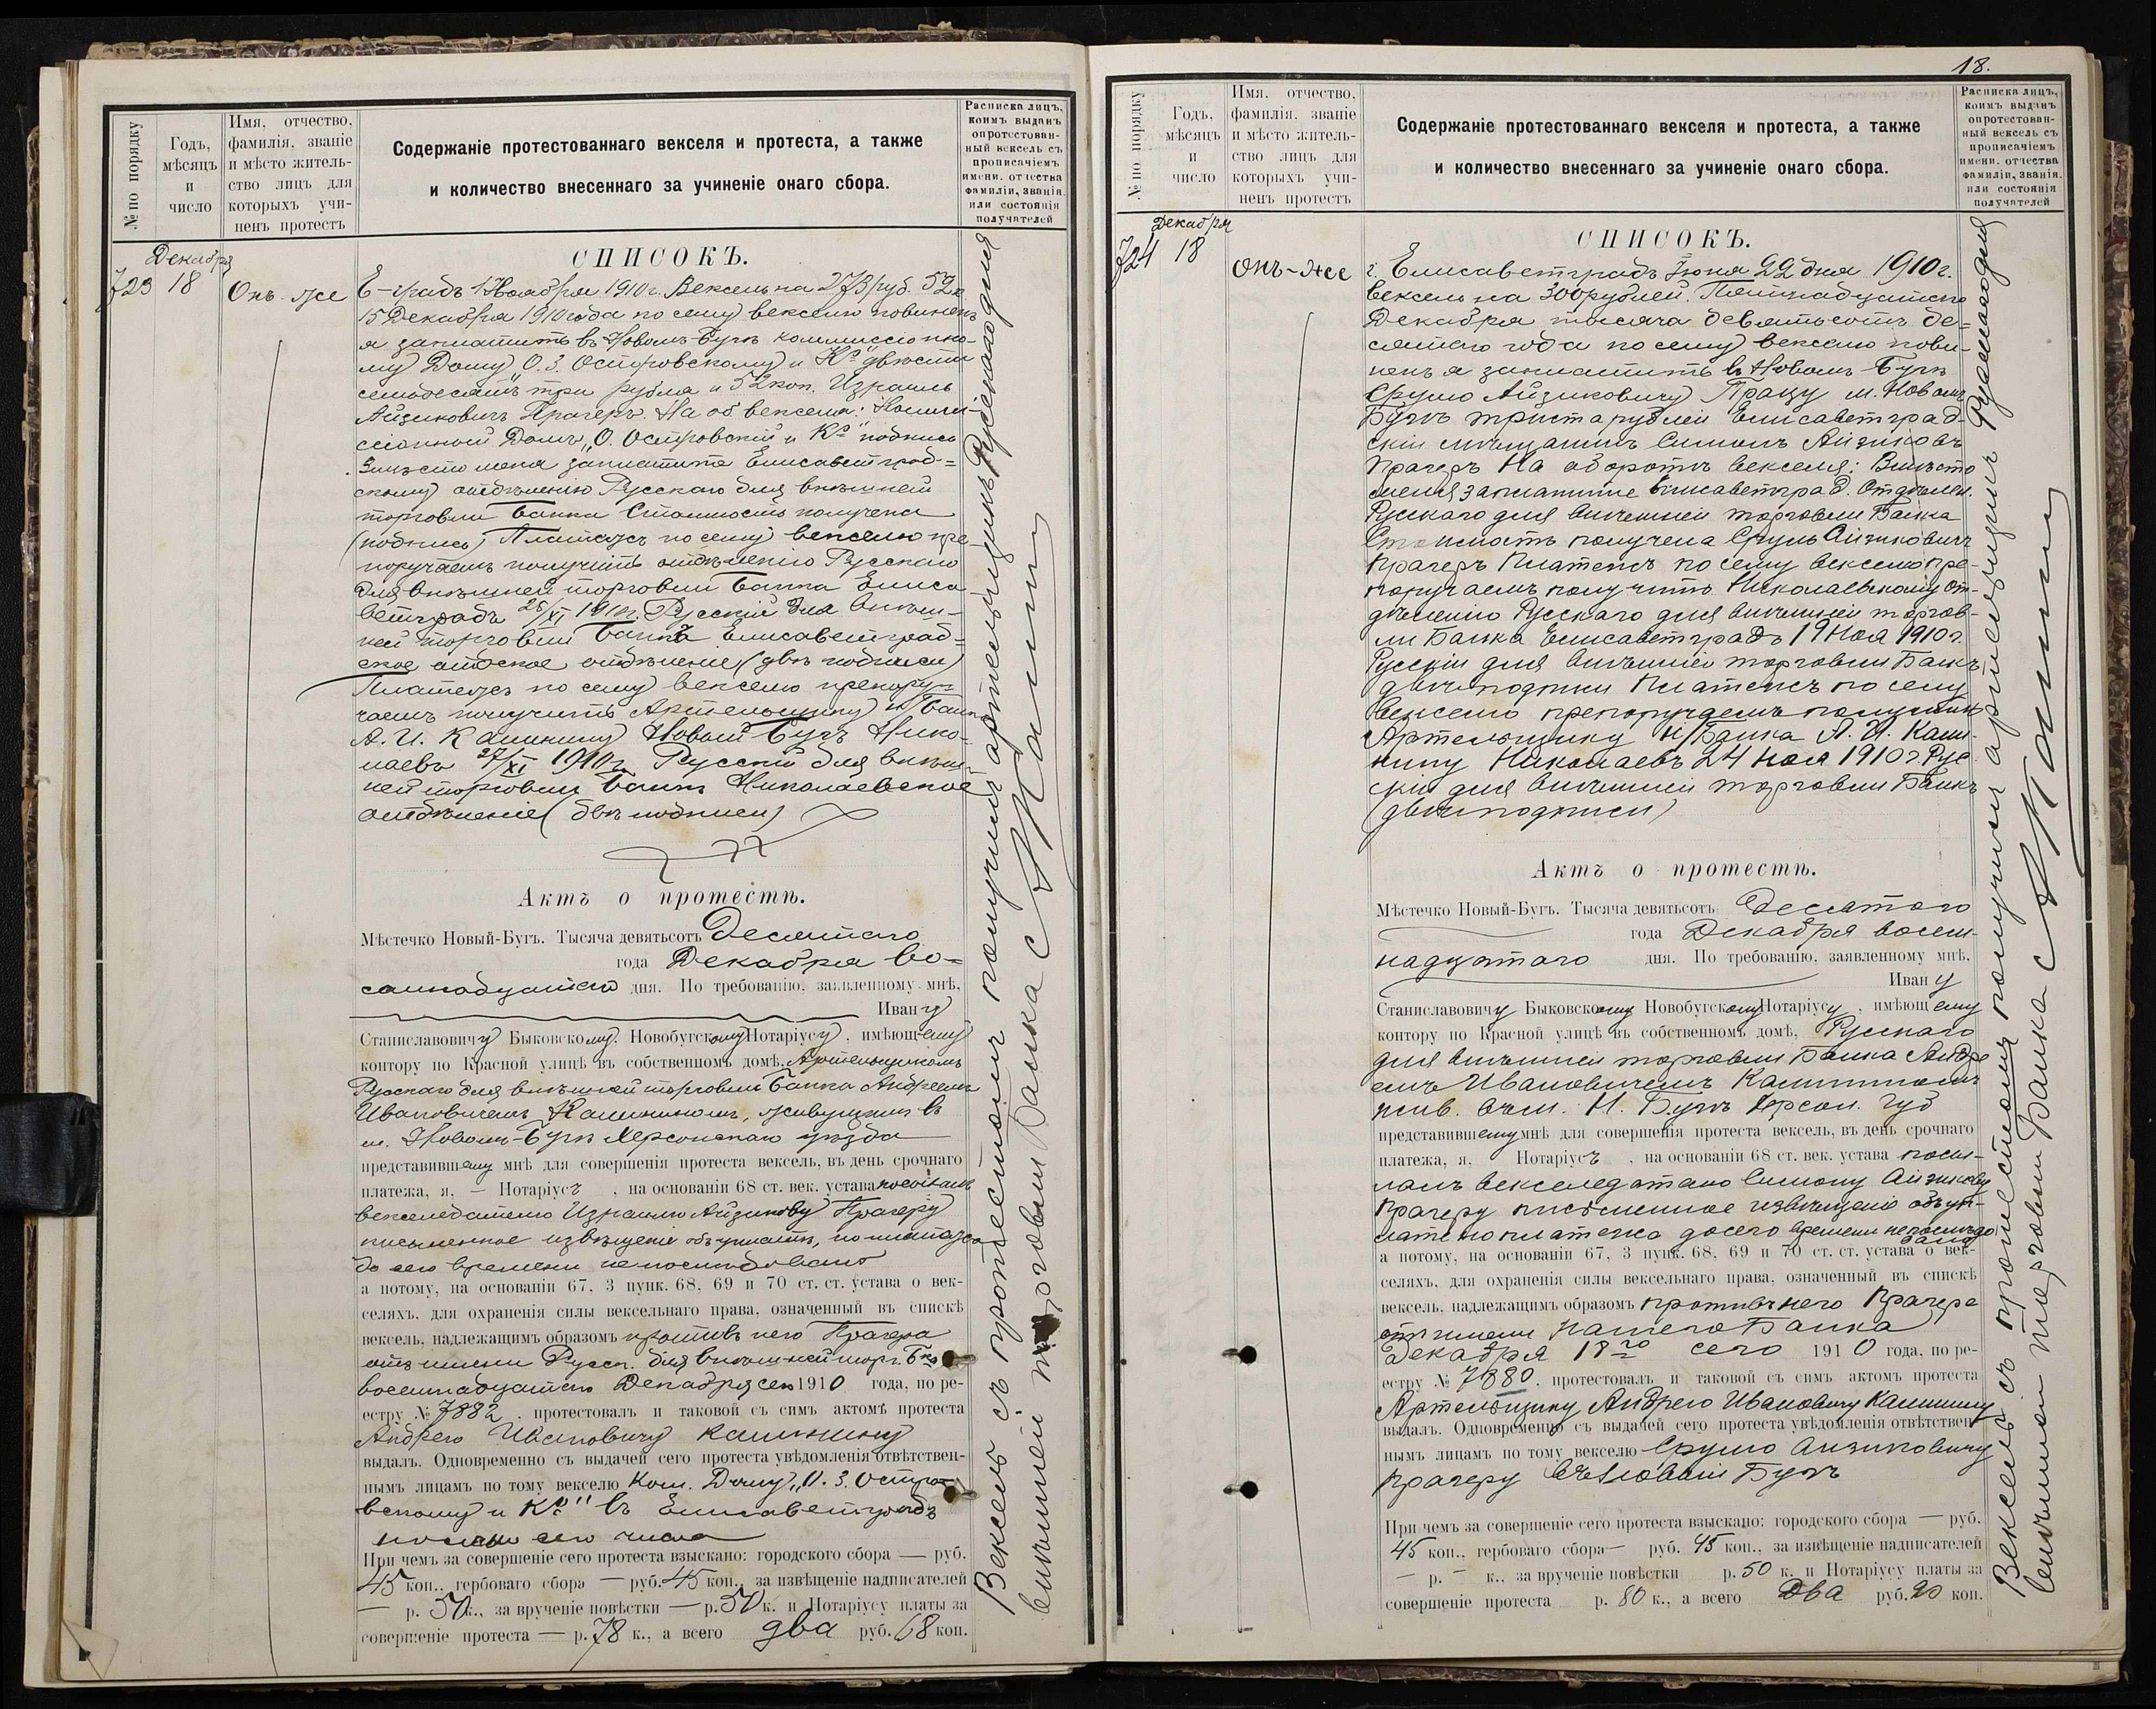 № по порядку
Годъ, мѣсяцъ и число
Имя, отчество, фамилія, званіе и мѣсто жительство лицъ для которыхъ учиненъ протестъ
Содержаніе протестованнаго векселя и протеста, а также
и количество внесеннаго за учиненіе онаго сбора.
Расписка лицъ, коимъ выданъ опротестованный вексель съ прописаніемъ имени, отчества фамиліи, званія, или состоянія получателей
Декабря
723 18 Онъ-же
СПИСОКЪ.
Е-градъ 1 Ноября 1910 г. Вексель на 273 руб. 52 к
15 Декабря 1910 года по сему векселю повиненъ
я заплатить въ Новомъ-Бугѣ коммиссіонно-
му Дому О. З. Островскому и Кº двѣсти
семьдесятъ три рубля и 52 коп. Израиль
Айзиковичъ Прагеръ. На об векселя: Комми-
ссіонный Домъ „О. Островскій и Кº" подпись
Вмѣсто меня заплатите Елисаветград-
скому отдѣленію Русскаго для внѣшней
торговли Банка Стоимость получена
(подпись) Платежъ по сему векселю пре-
поручаемъ получить отдѣленію Русскаго
для внѣшней торговли Банка Елиса
ветградъ 25/XI 1910 г. Русскій для внѣш-
ней торговли Банкъ Елисаветград-
ское отдѣленіе (двѣ подписи)
Платежъ по сему векселю препору-
чаемъ получить Артельщику н/Банка
А. И. Калинину Новый Бугъ Нико-
лаевъ 27/XI 1910 г. Русскій для внѣш-
ней торговли Банкъ Николаевское
отдѣленіе (двѣ подписи)
Актъ о протестѣ.
Мѣстечко Новый-Бугъ. Тысяча девятьсотъ Десятаго
года Декабря во-
семнадцатаго дня. По требованію, заявленному мнѣ,
Ивану
Станиславовичу Быковскому Новобугскому Нотаріусу, имѣющему
контору по Красной улицѣ въ собственномъ домѣ, Артельщикомъ
Русскаго для внѣшней торговли Банка Андреемъ
Ивановичемъ Калининымъ, живущимъ въ
м. Новомъ-Бугѣ Херсонскаго уѣзда
представившему мнѣ для совершенія протеста вексель, въ день срочнаго
платежа, я, — Нотаріусъ, на основаніи 68 ст. век. устава посылалъ
векселедателю Израилю Айзикову Прагеру
письменное извѣщеніе объ уплатѣ, но платежа
до сего времени не послѣдовало
а потому, на основаніи 67, 3 пунк. 68, 69 и 70 ст. ст. устава о век-
селяхъ, для охраненія силы вексельнаго права, означенный въ спискѣ
вексель, надлежащимъ образомъ противъ него Прагера
отъ имени Русск. для внѣшней торг. Бка
восемнадцатаго Декабря сего 1910 года, по ре-
естру № 7882, протестовалъ и таковой съ симъ актомъ протеста
Андрею Ивановичу Калинину
выдалъ. Одновременно съ выдачей сего протеста увѣдомленія отвѣтствен-
нымъ лицамъ по тому векселю Ком. Дому „О. З. Остро-
вскому и Кº" въ Елисаветградъ
посланы сего числа
При чемъ за совершеніе сего протеста взыскано: городского сбора — руб.
45 коп., гербоваго сбора — руб. 45 коп., за извѣщеніе надписателей
— р. 50 к., за врученіе повѣстки — р. 50 к. и Нотаріусу платы за
совершеніе протеста — р. 78 к., а всего два руб. 68 коп.
Вексель съ протестомъ получилъ артельщикъ Русскаго для
внѣшней торговли Банка А Калинин
18.
№ по порядку
Годъ, мѣсяцъ и число
Имя, отчество, фамилія, званіе и мѣсто жительство лицъ для которыхъ учиненъ протестъ
Содержаніе протестованнаго векселя и протеста, а также
и количество внесеннаго за учиненіе онаго сбора.
Расписка лицъ, коимъ выданъ опротестованный вексель съ прописаніемъ имени, отчества фамиліи, званія, или состоянія получателей
Декабря
724 18 Онъ-же
СПИСОКЪ.
г. Елисаветградъ Іюня 22 дня 1910 г.
вексель на 300 рублей. Пятнадцатаго
Декабря тысяча девятьсотъ де-
сятаго года по сему векселю пови-
ненъ я заплатить въ Новомъ Бугѣ
Срулю Айзиковичу Прагеру м. Новомъ
Бугѣ триста рублей Елисаветград-
скій мѣщанинъ Симонъ Айзиковъ
Прагеръ На оборотѣ векселя: Вмѣсто
меня заплатите Елисаветград. Отдѣлен.
Русскаго для внѣшней торговли Банка
Стоимость получена Сруль Айзиковичъ
Прагеръ Платежъ по сему векселю пре-
поручаемъ получить Николаевскому от-
дѣленію Русскаго для внѣшней торгов-
ли Банка Елисаветградъ 19 Ноя 1910 г.
Русскій для внѣшней торговли Банкъ
двѣ подписи Платежъ по сему
векселю препоручаемъ получить
Артельщику Н/Банка А. И. Кали-
нину Николаевъ 24 Ноя 1910 г. Рус-
скій для внѣшней торговли Банкъ
(двѣ подписи)
Актъ о протестѣ.
Мѣстечко Новый-Бугъ. Тысяча девятьсотъ Десятаго
года Декабря восем-
надцатаго дня. По требованію, заявленному мнѣ,
Ивану
Станиславовичу Быковскому Новобугскому Нотаріусу, имѣющему
контору по Красной улицѣ въ собственномъ домѣ, Русскаго
для внѣшней торговли Банка Андре
емъ Ивановичемъ Калининымъ
жив. въ м. Н. Бугѣ Херсон. губ
представившему мнѣ для совершенія протеста вексель, въ день срочнаго
платежа, я, Нотаріусъ, на основаніи 68 ст. век. устава посы-
лалъ векселедателю Симону Айзикову
Прагеру письменное извѣщеніе объ уп-
латѣ но платежа до сего времени не послѣдо
вало
а потому, на основаніи 67, 3 пунк. 68, 69 и 70 ст. ст. устава о век-
селяхъ, для охраненія силы вексельнаго права, означенный въ спискѣ
вексель, надлежащимъ образомъ противъ него Прагера
отъ имени Банка
Декабря 18го сего 1910 года, по ре-
естру № 7880, протестовалъ и таковой съ симъ актомъ протеста
Артельщику Андрею Ивановичу Калинину
выдалъ. Одновременно съ выдачей сего протеста увѣдомленія отвѣтствен
нымъ лицамъ по тому векселю Срулю Айзиковичу
Прагеру въ Новый Бугъ
При чемъ за совершеніе сего протеста взыскано: городского сбора — руб.
45 коп., гербоваго сбора — руб. 45 коп., за извѣщеніе надписателей
— р. — к., за врученіе повѣстки р. 50 к. и Нотаріусу платы за
совершеніе протеста р. 80 к., а всего Два руб. 20 коп.
Вексель съ протестомъ получилъ артельщикъ Русскаго для
внѣшней торговли Банка А Калинин